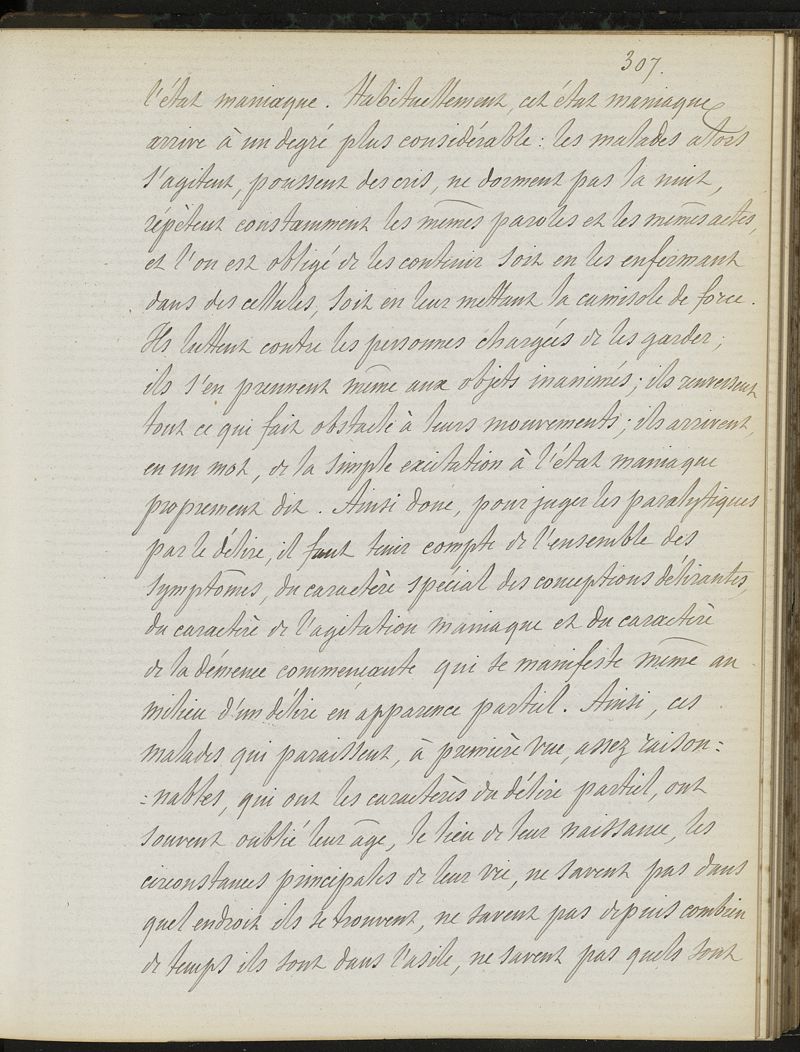 307.
l'état maniaque. Habituellement, cet état maniaque
arrive à un degré plus considérable : les malades alors
s'agitent, poussent des cris, ne dorment pas la nuit,
répètent constamment les mêmes paroles et les mêmes actes,
et l'on est obligé de les contenir soit en les enfermant
dans des cellules, soit en leur mettant la camisole de force.
Ils luttent contre les personnes chargées de les garder ;
ils s'en prennent même aux objets inanimés ; ils renversent
tout ce qui fait obstacle à leurs mouvements ; ils arrivent,
en un mot, de la simple excitation à l'état maniaque
proprement dit. Ainsi donc, pour juger les paralytiques
par le délire, il faut tenir compte de l'ensemble des
symptômes, du caractère spécial des conceptions délirantes,
du caractère de l'agitation maniaque et du caractère
de la démence commençante qui se manifeste même au
milieu d'un délire en apparence partiel. Ainsi, ces
malades qui paraissent, à première vue, assez raison=
=nables, qui ont les caractères du délire partiel, ont
souvent oublié leur âge, le lieu de leur naissance, les
circonstances principales de leur vie, ne savent pas dans
quel endroit ils se trouvent, ne savent pas depuis combien
de temps ils sont dans l'asile, ne savent pas quels sont